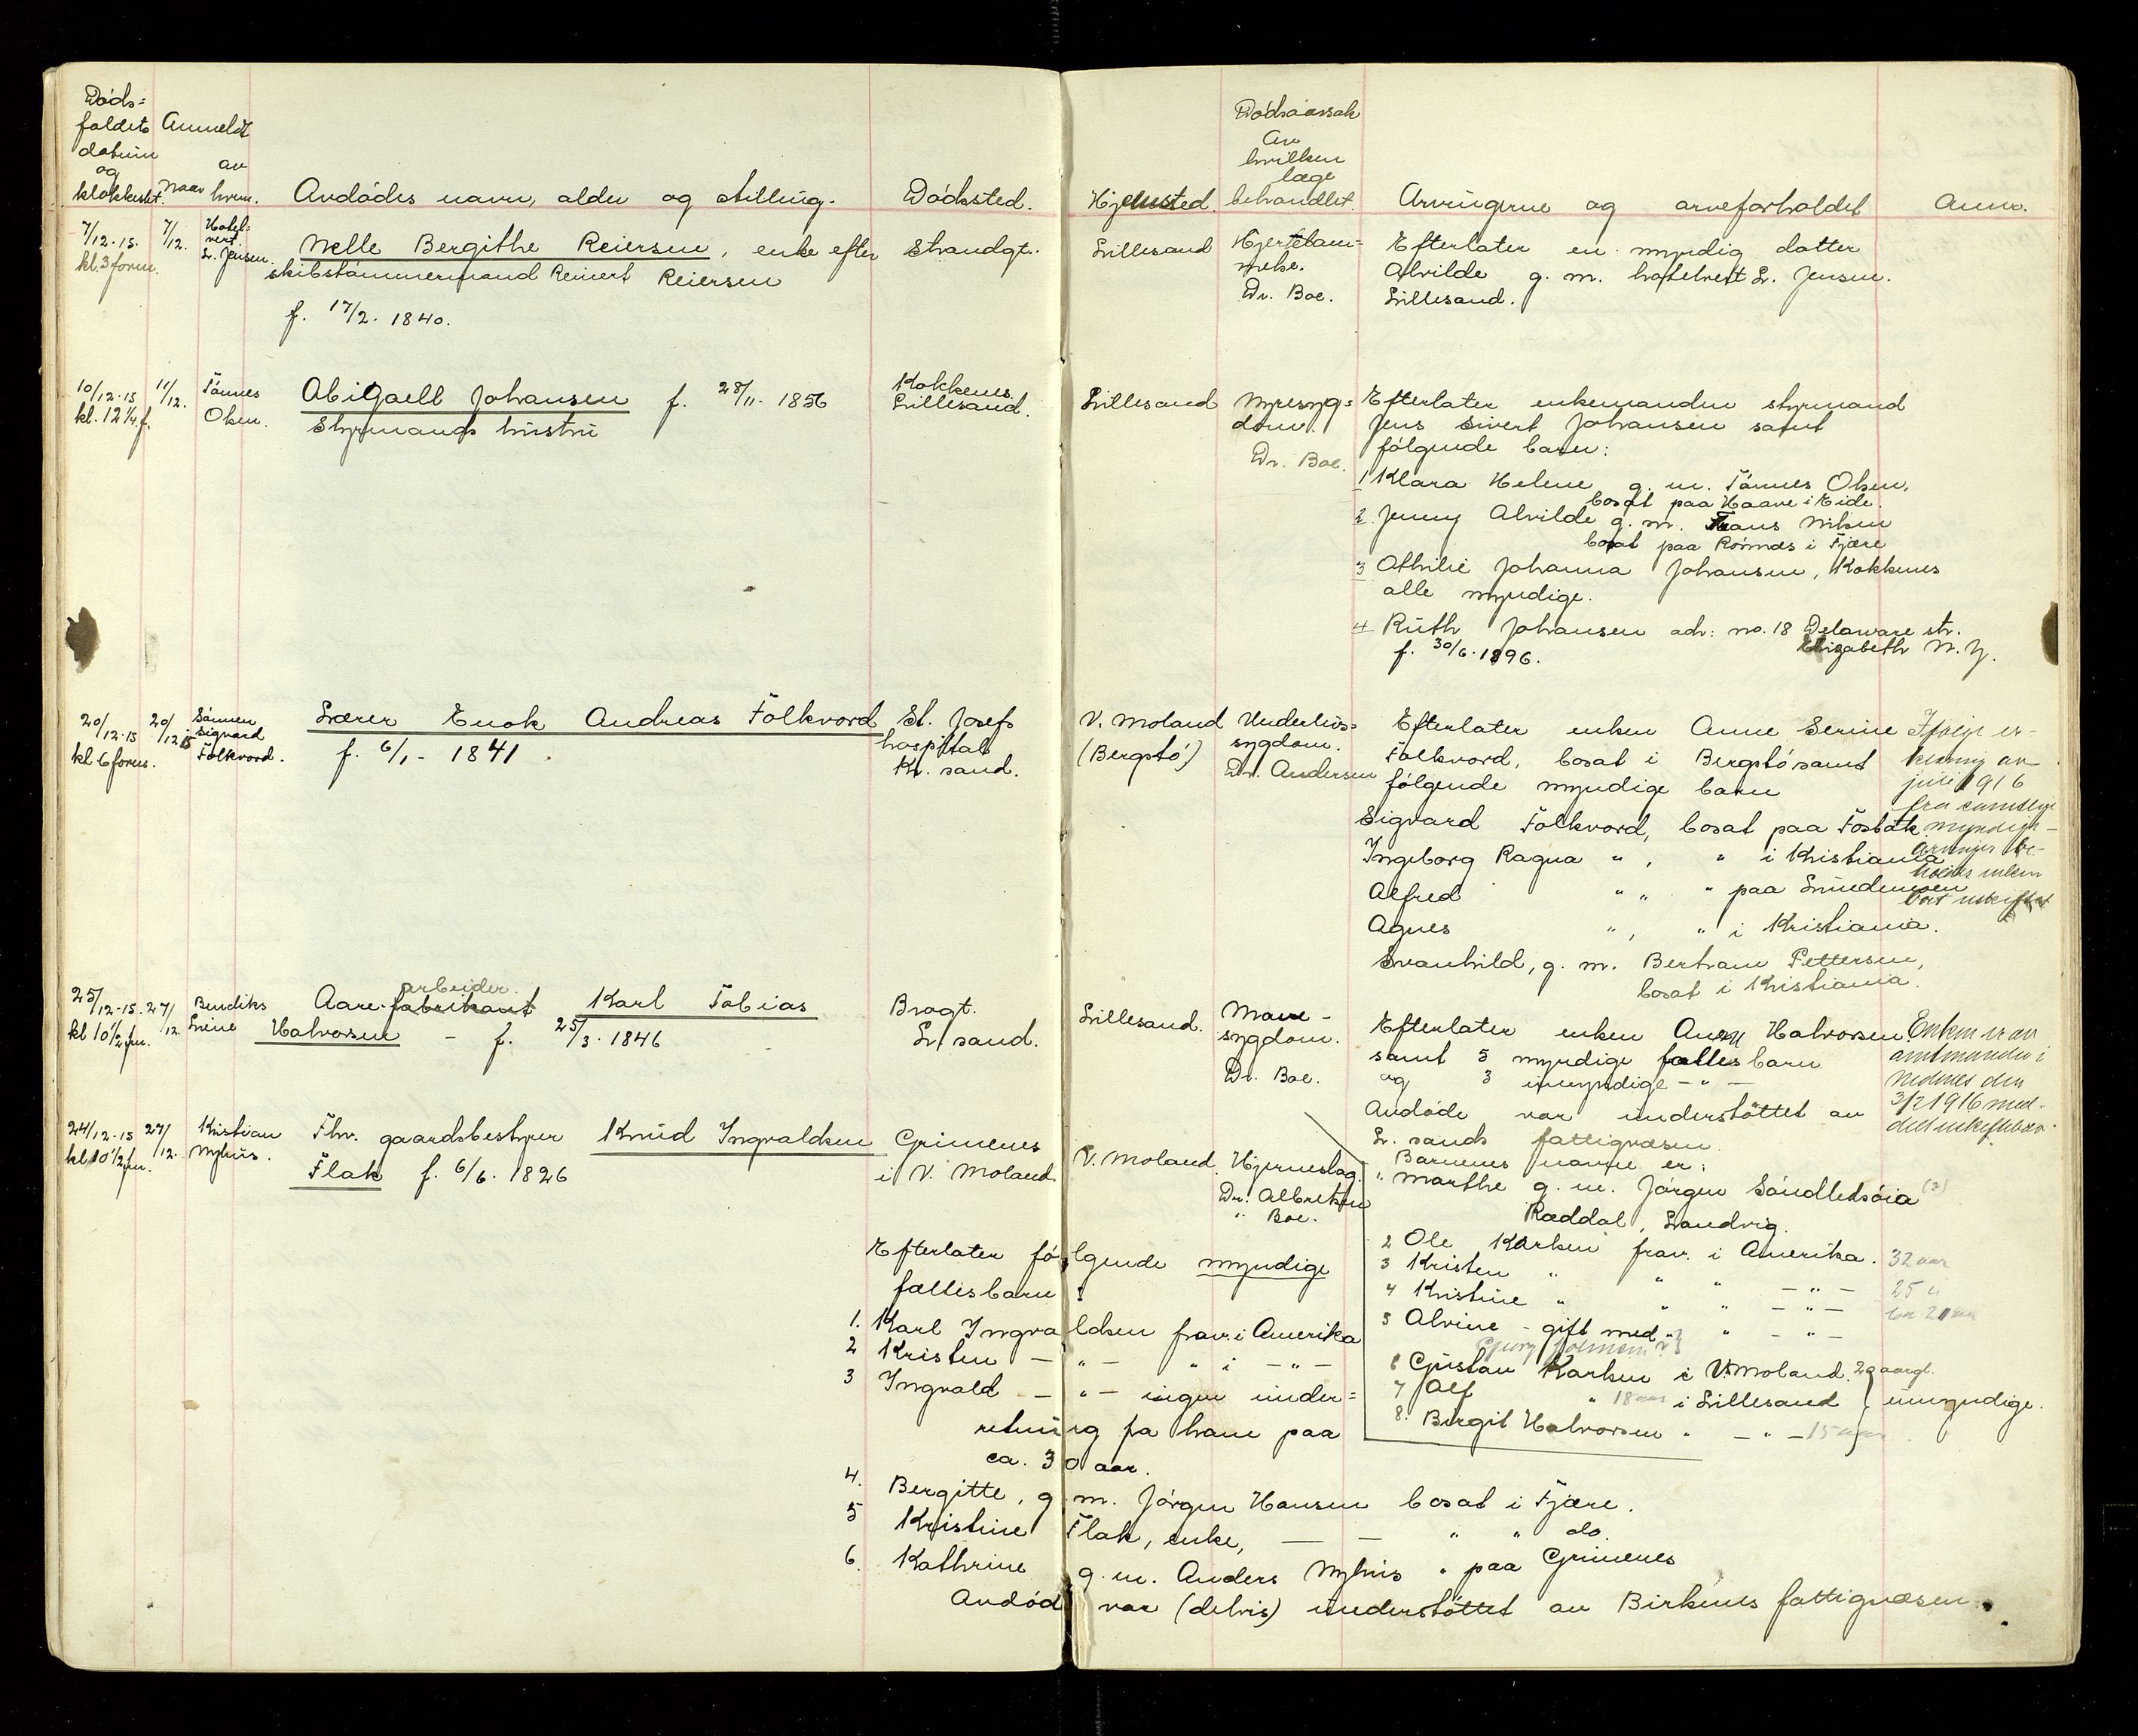 Döds=
faldets
datum
og
klokkeslet.
Anmeldt
naar
av
hvem.
Avdödes navn, alder og stilling.
Dödssted.
Hjemsted.
Dödsaarsak
Av
hvilken
læge
behandlet.
Arvingerne og arveforholdet
Anm.
7/12.15.
kl. 3 form.
7/12.
Hotel=
vert.
L. Jensen.
Nelle Bergithe Reiersen, enke efter
skibstömmermand Reinert Reiersen
f. 17/2. 1840.
Strandgt.
Lillesand
Hjertelam=
melse.
Dr. Boe.
Efterlater en myndig datter
Alvilde g. m. hotelvert L. Jensen.
Lillesand.
10/12.15
kl. 12 1/4 f.
11/12.
Tönnes
Olsen.
Abigaell Johansen f. 28/11. 1856
Styrmands hustru
Kokkenes.
Lillesand.
Lillesand
Nyresyg=
dom.
Dr. Boe.
Efterlater enkemanden styrmand
Jens Sivert Johansen samt
fölgende barn:
1 Klara Helene g. m. Tönnes Olsen,
bosat paa Haave i Eide.
2. Jenny Alvilde g. m. Frans Nilsen
bosat paa Rönnes i Fjære
3 Othilie Johanna Johansen, Kokkenes
alle myndige.
4 Ruth Johansen adr: no. 18 Delaware str.
f. 30/6. 1896. Elisabeth N. Y.
20/12.15
kl 6 form.
20/12 15
Sönnen
Sigvard
Folkvord.
Lærer Enok Andreas Folkvord
f. 6/1 - 1841
St. Josefs
hospital
Kr. sand.
V. Moland
(Bergstö)
Underlivs=
sygdom.
Dr. Andersen
Efterlater enken Anne Serine
Folkvord, bosat i Bergstö samt
fölgende myndige barn
Sigvard Folkvord, bosat paa Fosbæk
Ingeborg Ragna " , " i Kristiania
Alfred " " " paa Lundemoen
Agnes " , " i Kristiania.
Svanhild, g. m. Bertram Pettersen,
bosat i Kristiania.
Ifølge er-
klæring av
juli 1916
fra samtlige
myndige
arvinger be-
holder enken
boet uskiftet
25/12.15.
kl 10 1/2 fm.
27/12.
Bendiks
Lene
arbeider.
Aare-fabrikant Karl Tobias
Halvorsen - f. 25/3. 1846
Brogt.
L. sand.
Lillesand.
Mave-
sygdom.
Dr. Boe.
Efterlater enken Anny Halvorsen
samt 5 myndige fælles barn
og 3 umyndige - " -
Avdöde var understöttet av
L. sands fattigvæsen
Barnenes navne er:
" Marthe g. m. Jörgen Söndledsöia (?)
Ræddal, Landvig.
2 Ole Karlsen frav. i Amerika.
3 Kristen " " " - " - 32 aar
4 Kristine " " " - " - 25 "
5 Alvine - gift med " " - " -
6 Gustav Karlsen i V. Moland. 20 aar gl.
7 Alf " 18 aar i Lillesand } umyndige.
8. Birgit Halvorsen " - " - 15 aar
Enken er av
amtmanden i
Nedenes den
3/2 1916 med-
delt uskiftebev.
24/12.15
kl 10 1/2 fm.
27/12.
Kristian
Myhus.
Fhv. gaardsbestyrer Knud Ingvaldsen
Flak f. 6/6. 1826
Grimenes
i V. Moland.
V. Moland.
Hjerneslag.
Dr. Albretsen
" Boe.
Efterlater fölgende myndige
fællesbarn :
1. Karl Ingvaldsen frav. i Amerika
2 Kristen - " - " i - " -
3 Ingvald - " - ingen under=
retning fra ham paa
ca. 30 aar.
4. Bergitte, g. m. Jörgen Hansen bosat i Fjære.
5 Kristine Flak, enke, - - " " do.
6. Kathrine g. m. Anders Myhus " paa Grimenes
Avdöd var (delvis) understöttet av Birkenes fattigvæsen.